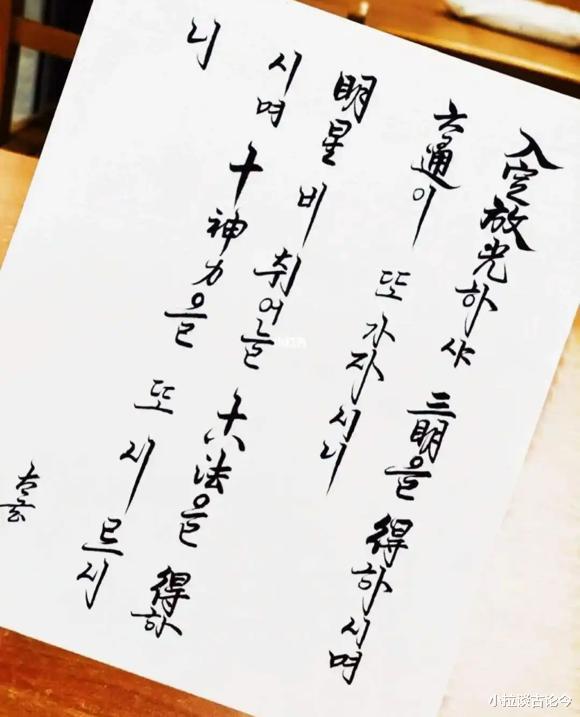 入定放光하샤 三明을 得하시며
六通이 또 가자시니
明星 비취어늘 十八法을 得하
시며 十神力을 또 시르시
니
小拉谈古论今